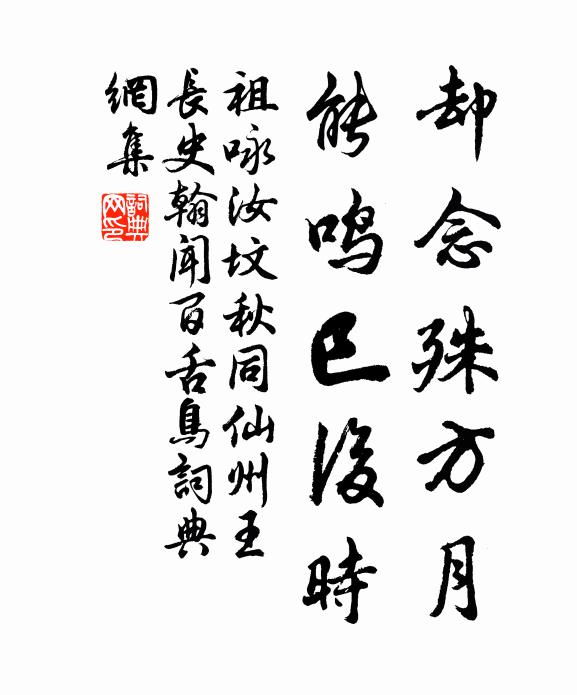 却念殊方月
能鳴已後時
祖咏汝墳秋同仙州王
長史翰聞百舌鳥詞典
網集
詞典網印